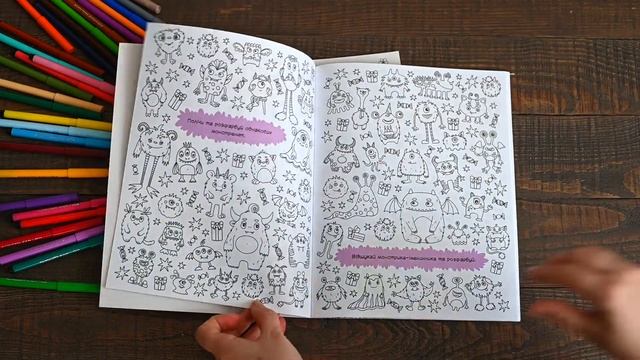 Полічи та розфарбуй однакових
монстренят.
Відшукай монстрика-іменинника та розфарбуй.